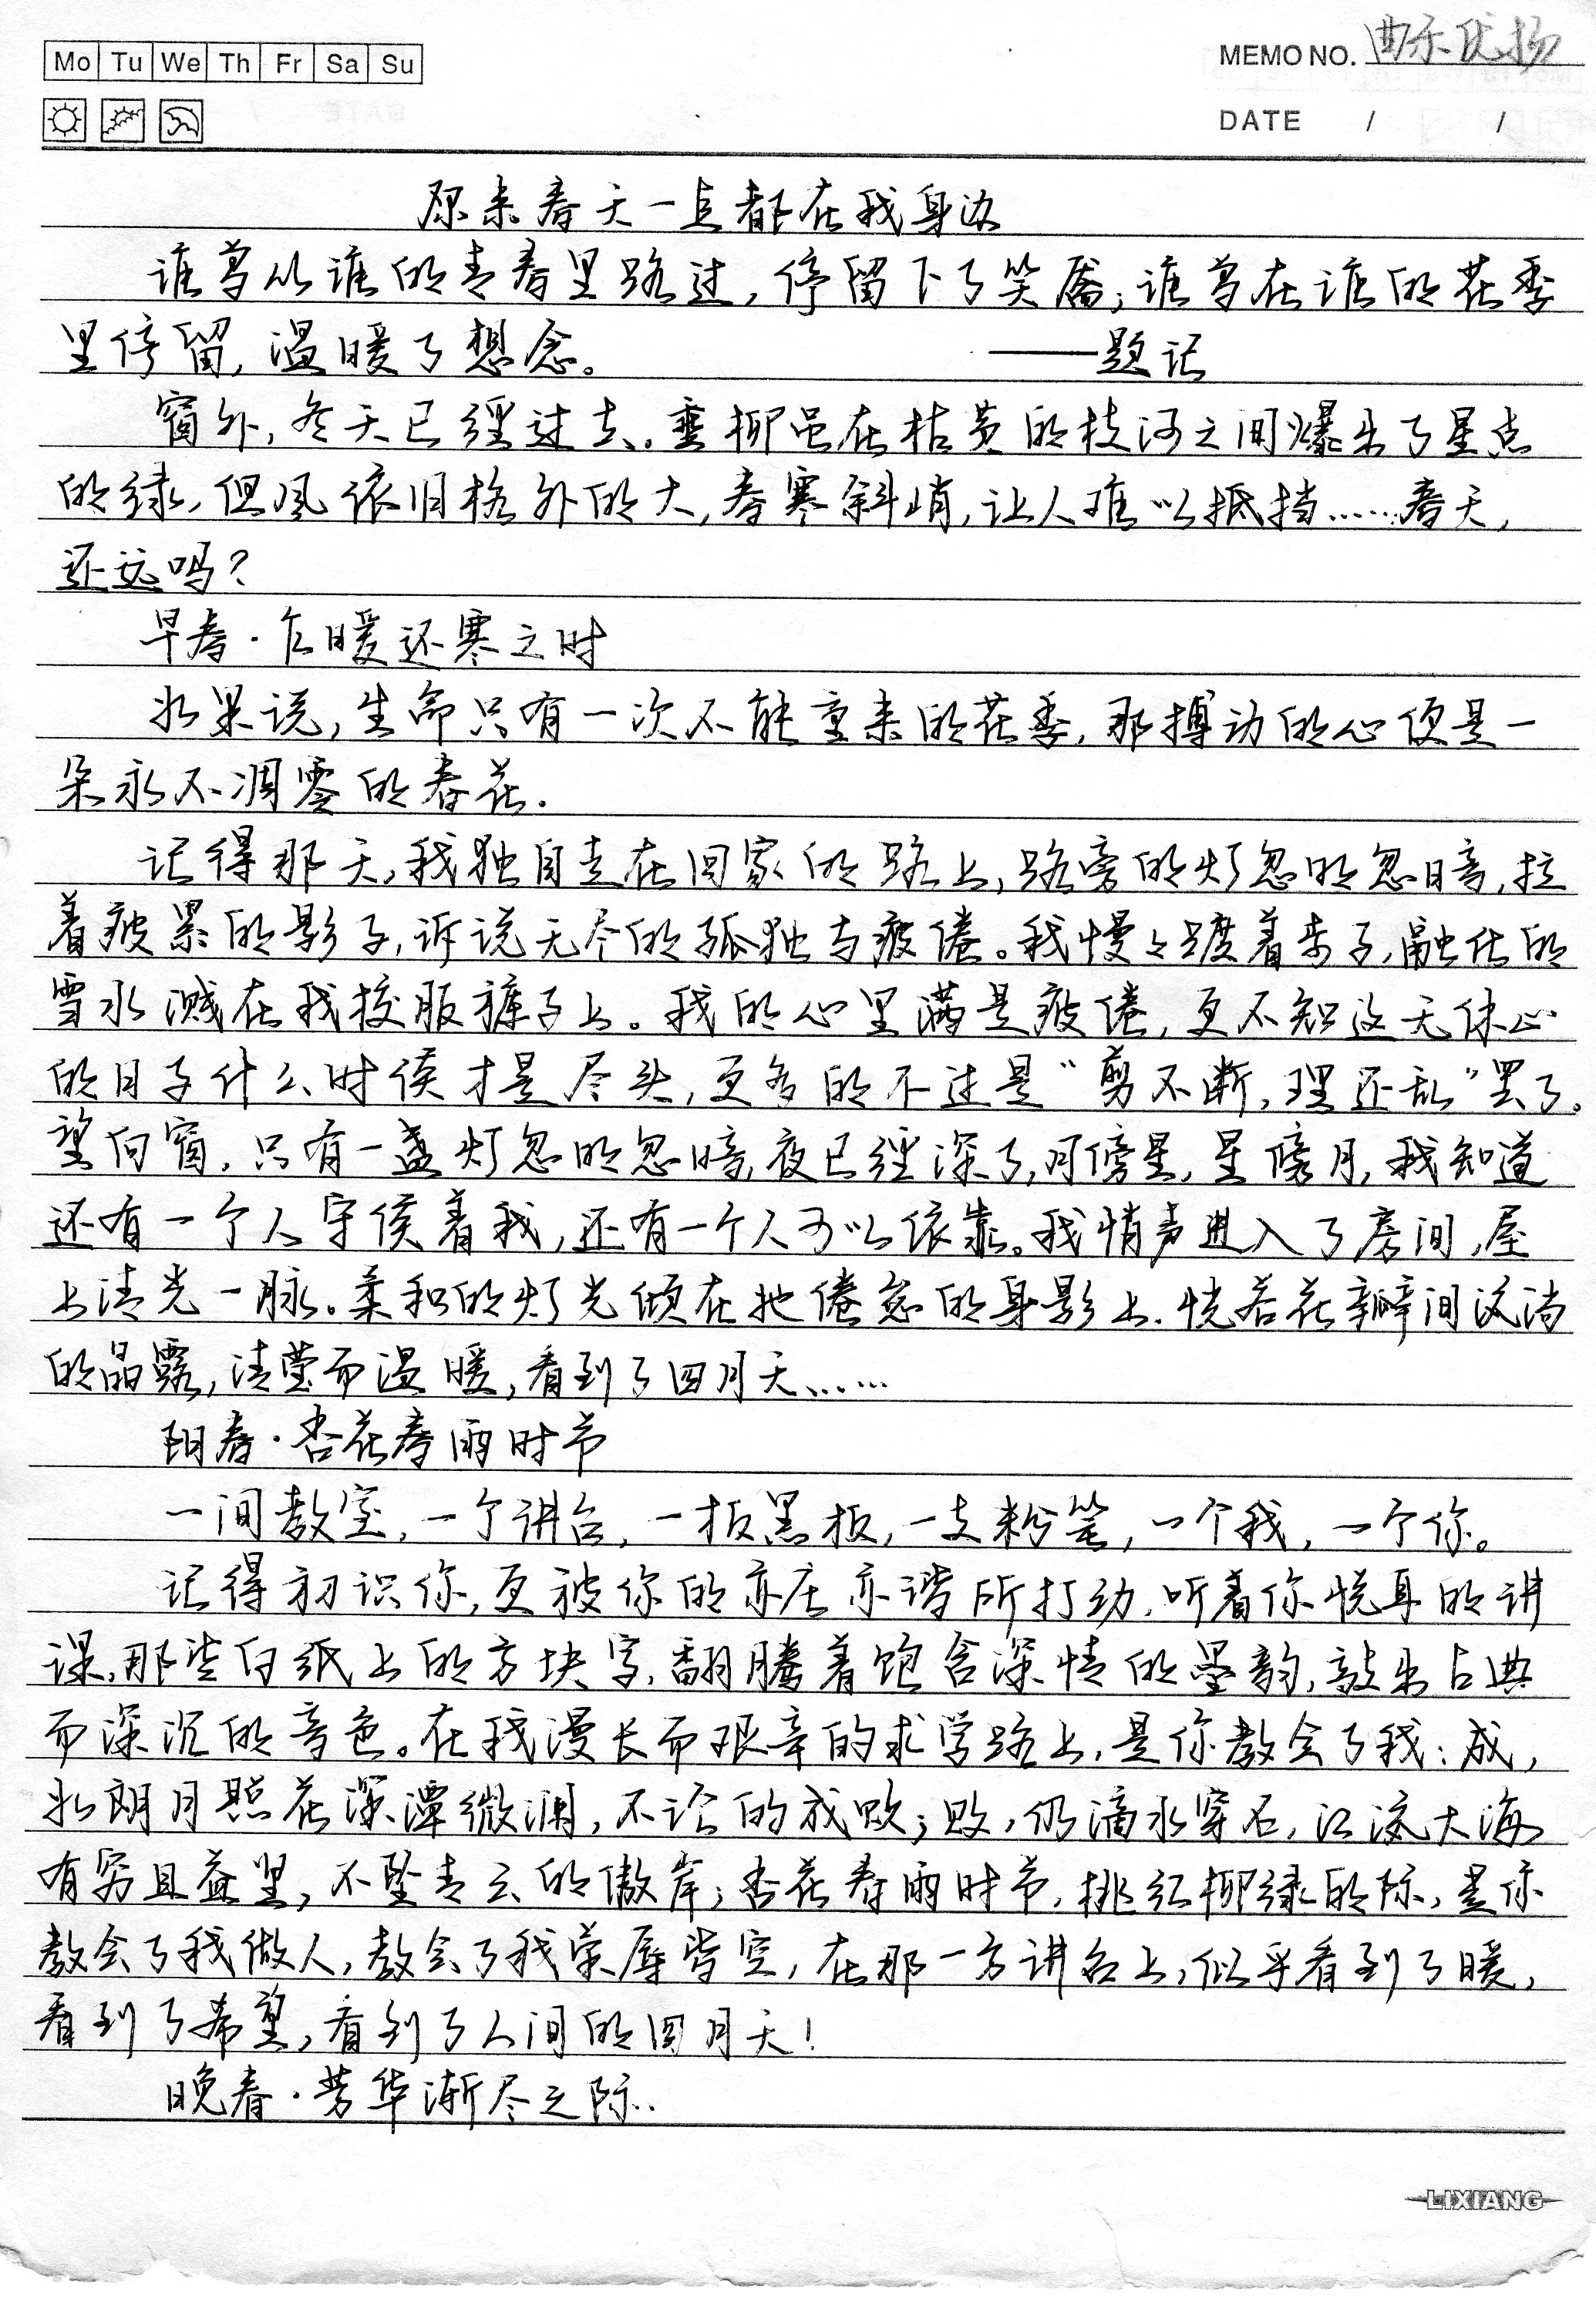 Mo Tu We Th Fr Sa Su
MEMO NO. 曲乐优扬
DATE / /
原来春天一直都在我身边
谁曾从谁的青春里路过,停留下了笑靥;谁曾在谁的花季
里停留,温暖了想念。 ——题记
窗外,冬天已经过去。垂柳虽在枯黄的枝河之间爆出了星点
的绿,但风依旧格外的大,春寒斜峭,让人难以抵挡……春天,
还远吗?
早春·乍暖还寒之时
如果说,生命只有一次不能重来的花季,那搏动的心便是一
朵永不凋零的春花.
记得那天,我独自走在回家的路上,路旁的灯忽明忽暗,拉
着疲累的影子,诉说无尽的孤独与疲倦。我慢々踱着步子,融化的
雪水溅在我校服裤子上。我的心里满是疲倦,更不知这无休止
的日子什么时侯才是尽头,更多的不过是“剪不断,理还乱”罢了。
望向窗,只有一盏灯忽明忽暗,夜已经深了,月傍星,星傍月,我知道
还有一个人守侯着我,还有一个人可以依靠。我悄声进入了房间,屋
上清光一脉。柔和的灯光倾在她倦怠的身影上.恍若花瓣间流淌
的晶露,清莹而温暖,看到了四月天……
阳春·杏花春雨时节
一间教室,一个讲台,一板黑板,一支粉笔,一个我,一个你。
记得初识你,更被你的亦庄亦谐所打动.听着你悦耳的讲
课,那些白纸上的方块字,翻腾着饱含深情的墨韵,敲出古典
而深沉的音色。在我漫长而艰辛的求学路上,是你教会了我:成,
如朗月照花深潭微澜,不论的成败;败,仍滴水穿石,汇流大海
有穷且益坚,不坠青云的傲岸;杏花春雨时节,桃红柳绿的际,是你
教会了我做人,教会了我荣辱皆空,在那一方讲台上,似乎看到了暖,
看到了希望,看到了人间的四月天!
晚春·芳华渐尽之际..
LIXIANG